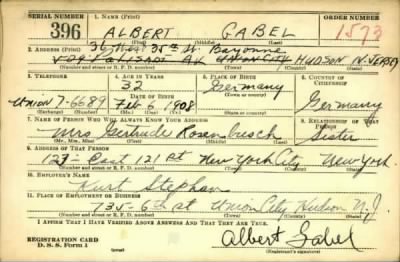 SERIAL NUMBER 1. NAME (Print) ORDER NUMBER
396 ALBERT GABEL 1573
(First) (Middle) (Last)
36 West 35th St. Bayonne
2. ADDRESS (Print)
AV. UNION CITY HUDSON N. JERSEY
(Number and street or R. F. D. number) (Town) (County) (State)
3. TELEPHONE 4. AGE IN YEARS 5. PLACE OF BIRTH 6. COUNTRY OF CITIZENSHIP
32 Germany
DATE OF BIRTH
UNION 7-6689 Feb 6 1908 Germany
(Exchange) (Number) (Mo.) (Day) (Yr.) (State or country)
7. NAME OF PERSON WHO WILL ALWAYS KNOW YOUR ADDRESS 8. RELATIONSHIP OF THAT PERSON
Mrs Gertrude Rosenbusch Sister
(Mr., Mrs., Miss) (First) (Middle) (Last)
9. ADDRESS OF THAT PERSON
127- East 121 st New York City New York.
(Number and street or R. F. D. number) (Town) (County) (State)
10. EMPLOYER'S NAME
Kurt Stephan
11. PLACE OF EMPLOYMENT OR BUSINESS
735- 6th st Union City Hudson N. J.
(Number and street or R. F. D. number) (Town) (County) (State)
I AFFIRM THAT I HAVE VERIFIED ABOVE ANSWERS AND THAT THEY ARE TRUE.
REGISTRATION CARD
D. S. S. Form 1
Albert Gabel
(Registrant's signature)